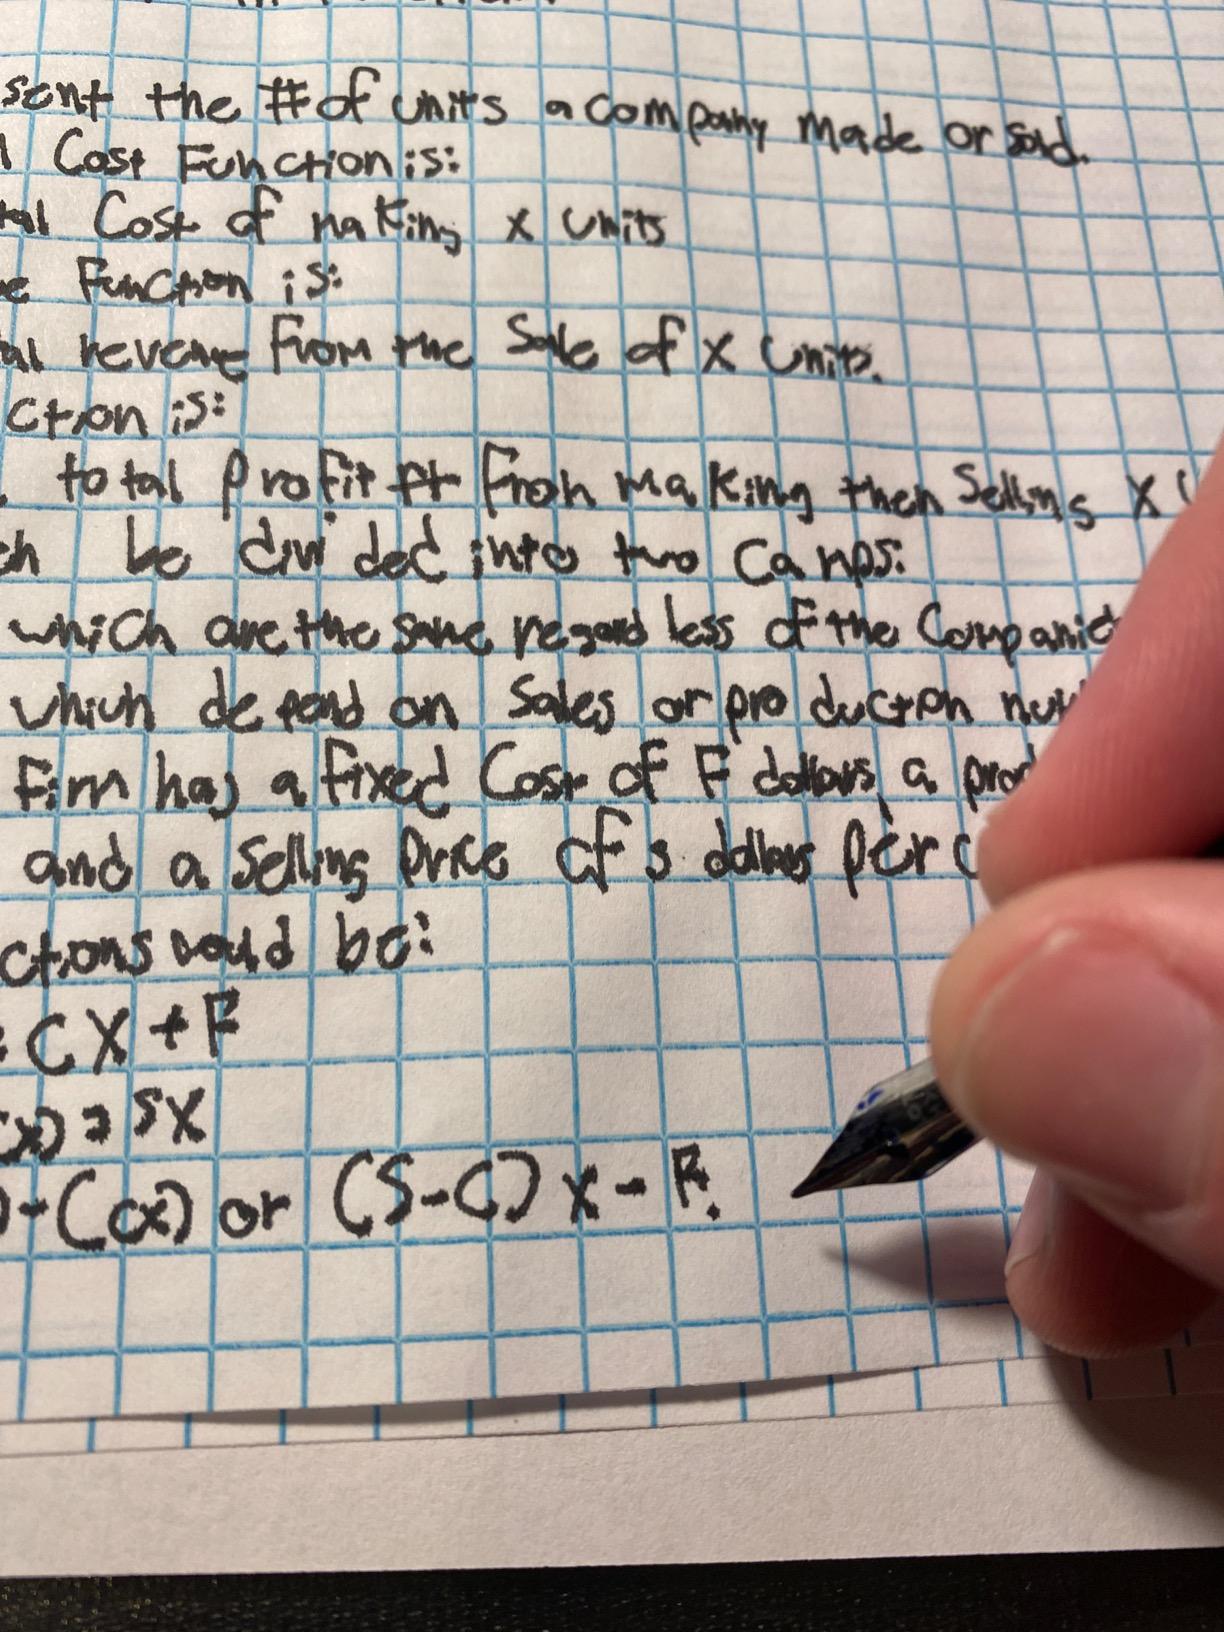 sent the # of units a company made or sold.
l Cost Function is:
tal Cost of making x units
e Function is:
al revenue from the Sale of x Units.
ction is:
total profit from making then Selling x
be divided into two Camps:
which are the same regardless of the Companie
which depend on Sales or production nu
Firm has a fixed Cost of F dollars, a prod
and a selling price of s dollars per
ctions would be:
= CX + F
(x) = SX
) - C(x) or (S-C) x - F.